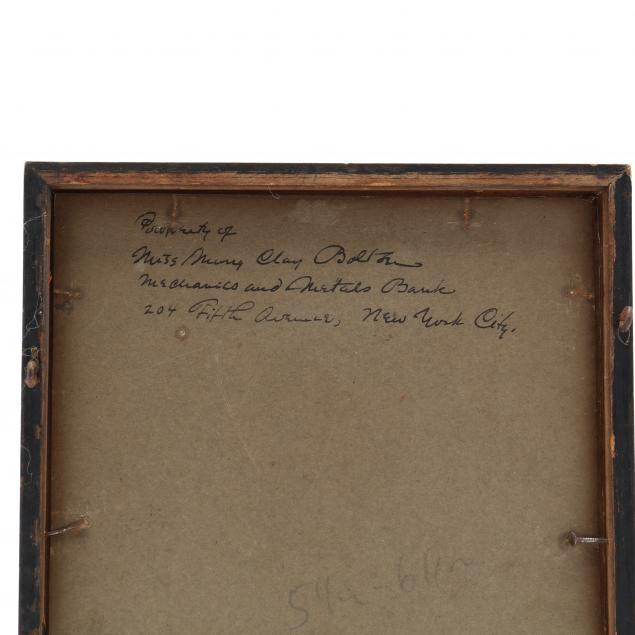 Property of
Miss Mary Clay Bolton
Mechanics and Metals Bank
204 Fifth Avenue, New York City.